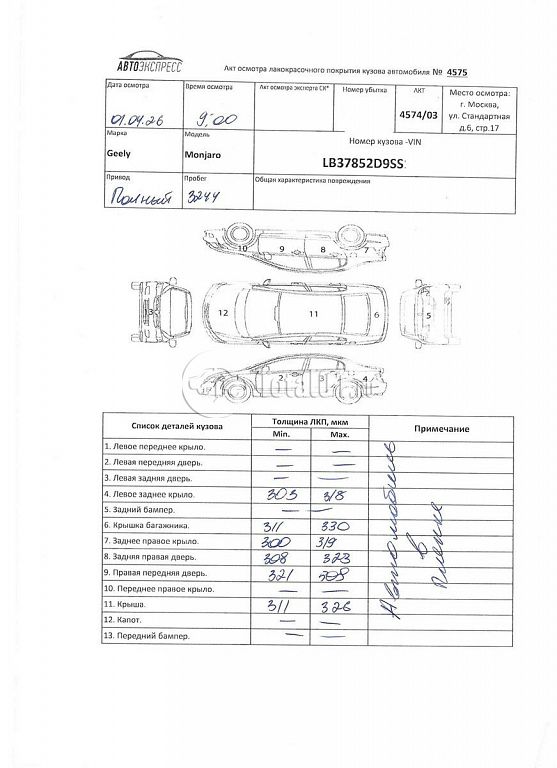 АВТОЭКСПРЕСС
Акт осмотра лакокрасочного покрытия кузова автомобиля № 4575
Дата осмотра Время осмотра Акт осмотра эксперта СК* Номер убытка АКТ Место осмотра:
г. Москва,
ул. Стандартная
д.6, стр.17
01.04.26 9:00 4574/03
Марка Модель Номер кузова -VIN
Geely Monjaro LB37852D9SS
Привод Пробег Общая характеристика повреждений
Полный 3244
10 9 8 7
13 12 11 6 5
2 4
Total01.ru
Список деталей кузова Толщина ЛКП, мкм Примечание
Min. Max.
1. Левое переднее крыло. — —
2. Левая передняя дверь. — —
3. Левая задняя дверь. — —
4. Левое заднее крыло. 303 318
5. Задний бампер. — —
6. Крышка багажника. 311 330
7. Заднее правое крыло. 300 319
8. Задняя правая дверь. 308 323
9. Правая передняя дверь. 321
10. Переднее правое крыло. — —
11. Крыша. 311 326
12. Капот. — —
13. Передний бампер. — —
Автомобиль
в
пленке